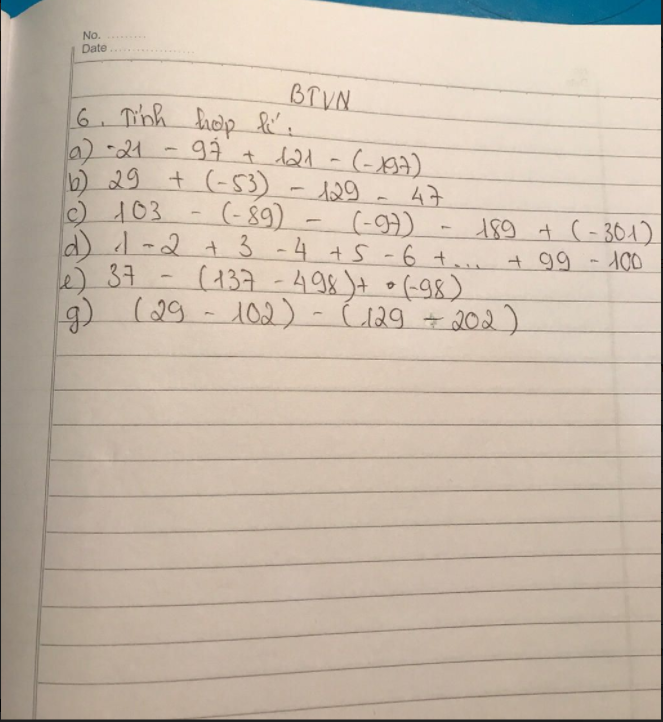 No. .........
Date ..................
BTVN
6. Tính hợp lí:
a) -21 - 97 + 121 - (-197)
b) 29 + (-53) - 129 - 47
c) 103 - (-89) - (-97) - 189 + (-301)
d) 1 - 2 + 3 - 4 + 5 - 6 + ... + 99 - 100
e) 37 - (137 - 498) + (-98)
g) (29 - 102) - (129 - 202)